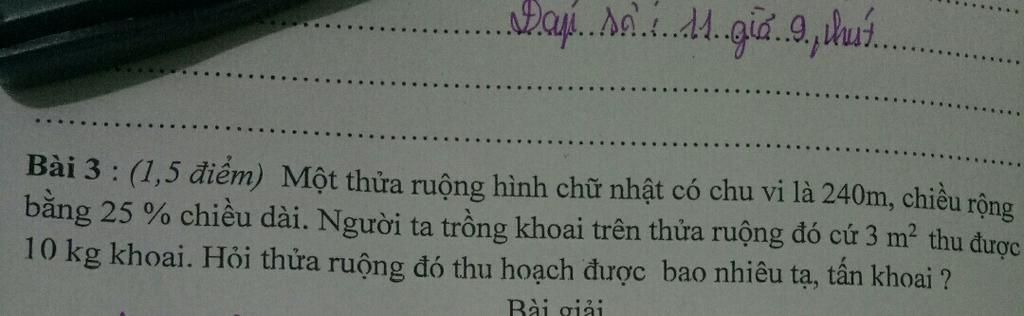 Đáp số : 11 giờ 9 phút
Bài 3 : (1,5 điểm) Một thửa ruộng hình chữ nhật có chu vi là 240m, chiều rộng
bằng 25 % chiều dài. Người ta trồng khoai trên thửa ruộng đó cứ 3 m² thu được
10 kg khoai. Hỏi thửa ruộng đó thu hoạch được bao nhiêu tạ, tấn khoai ?
Bài giải